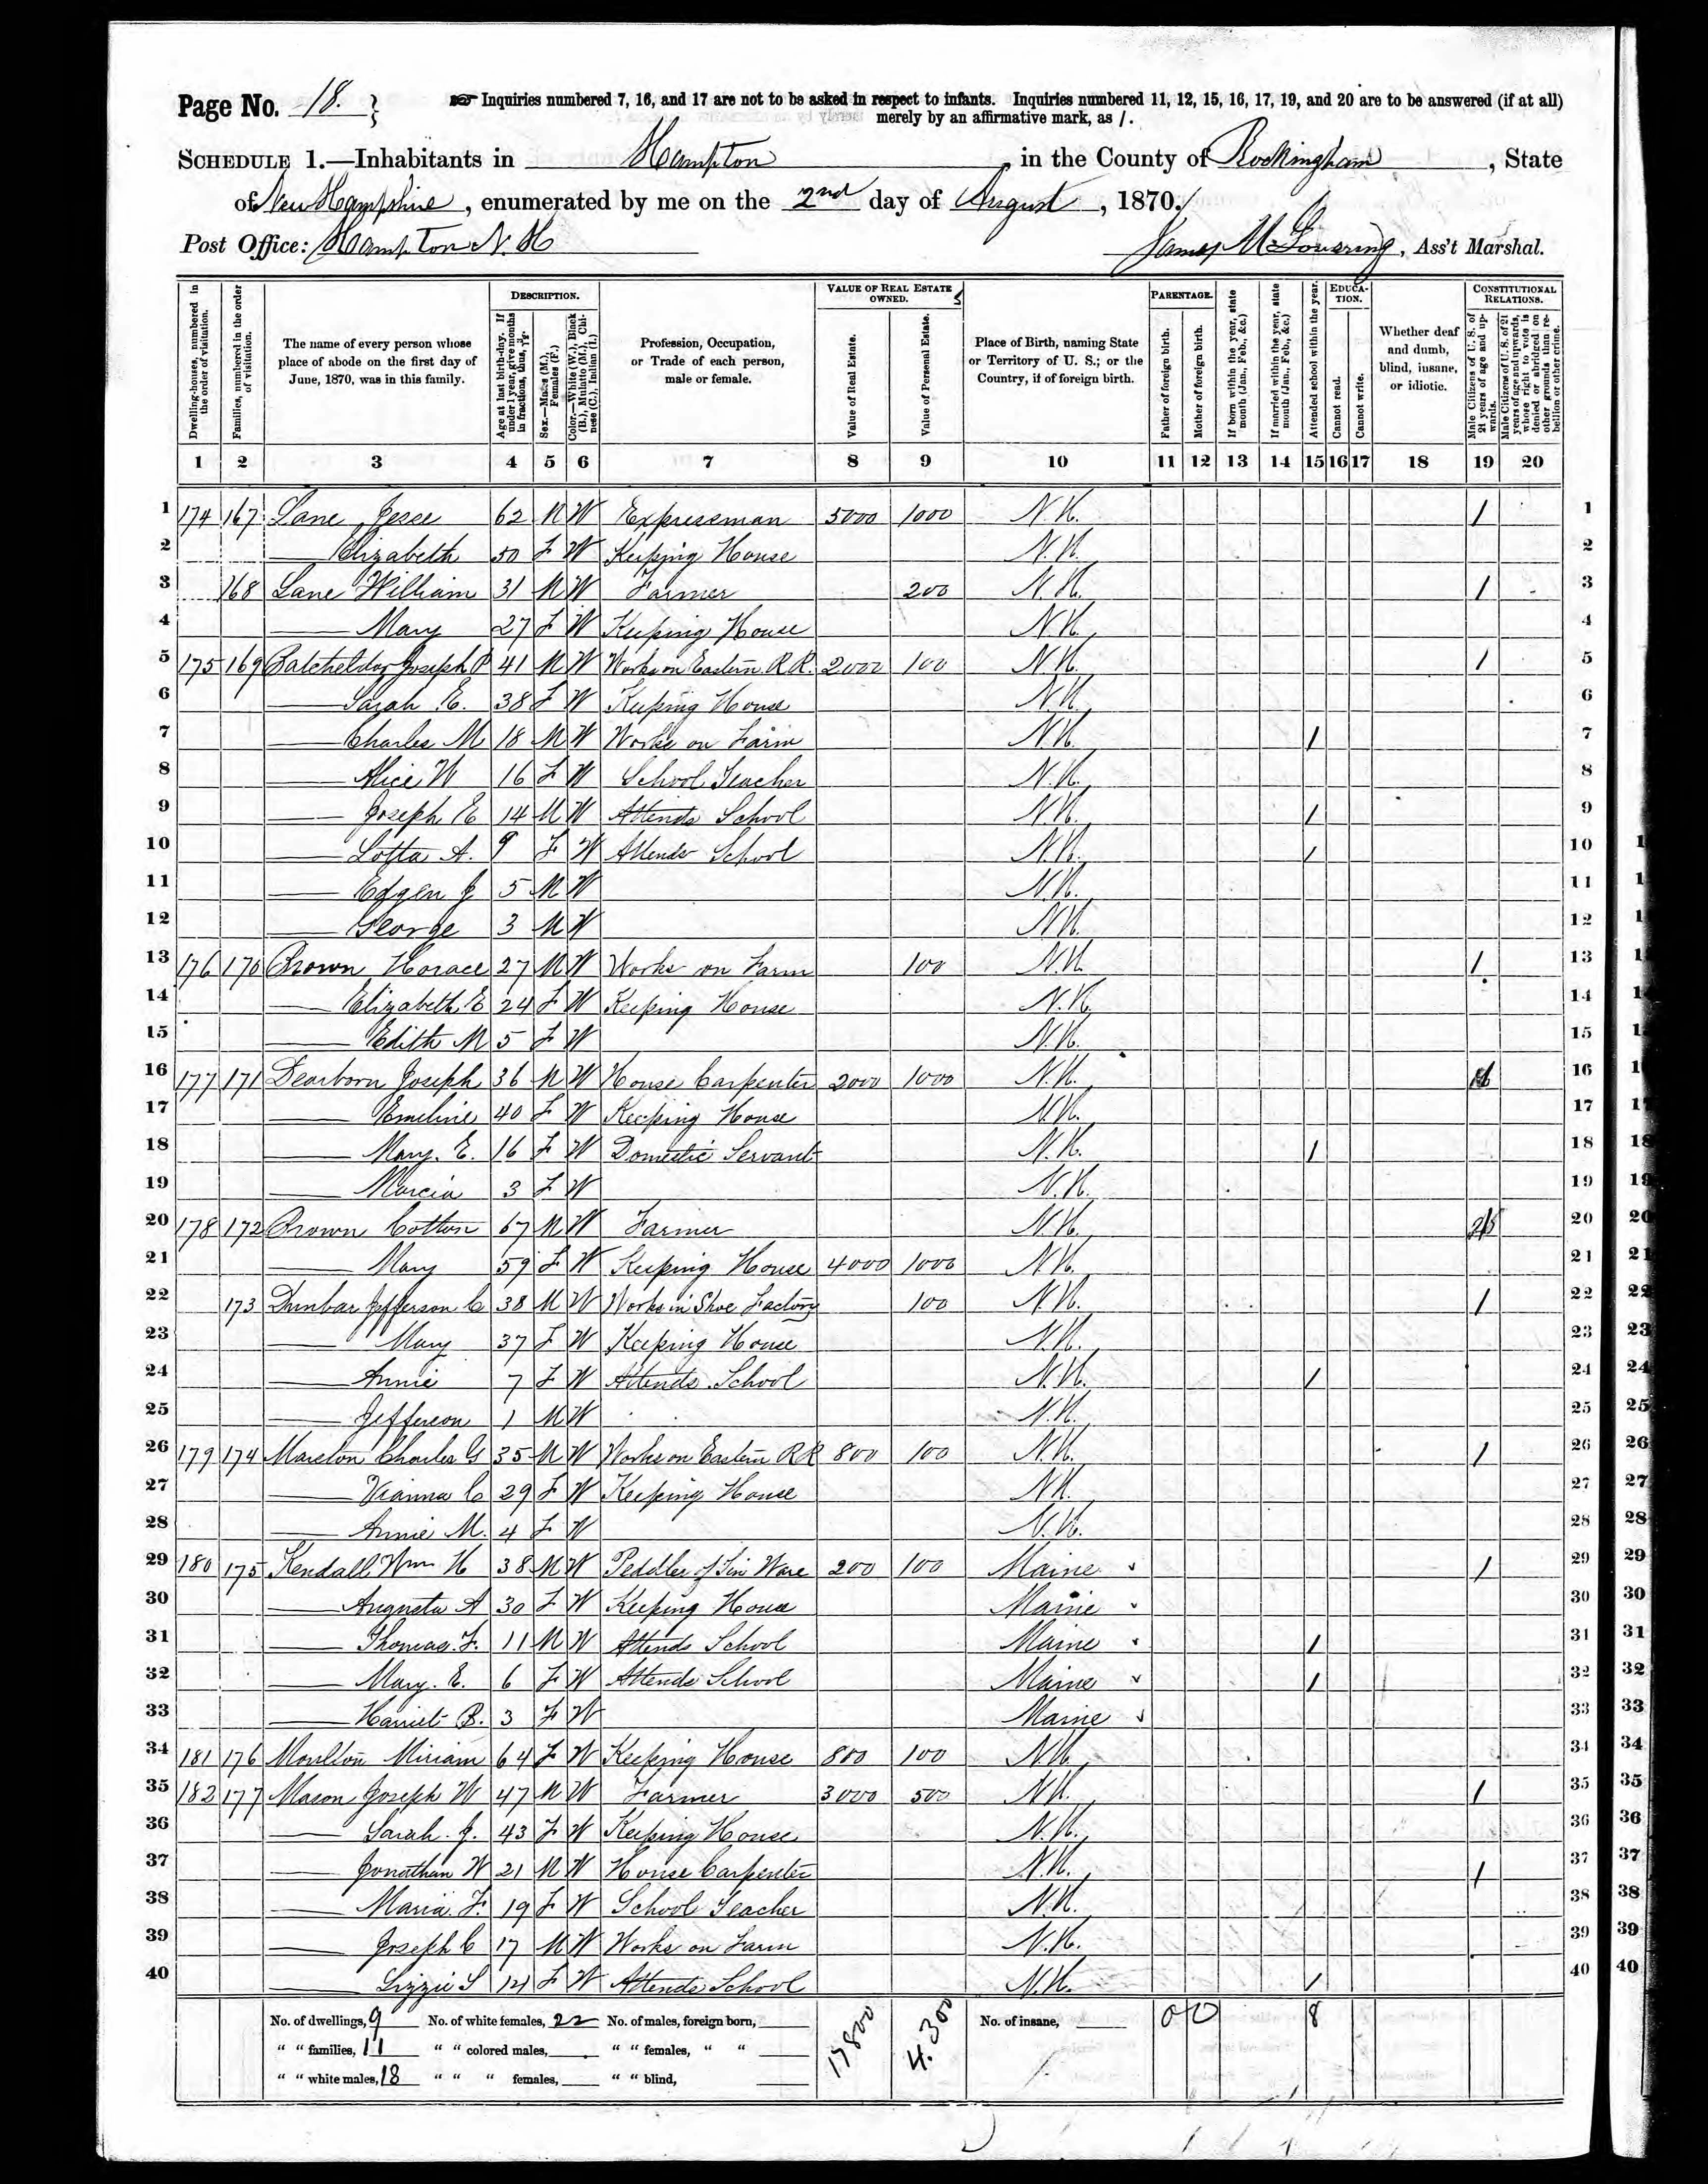 Page No. 18. Inquiries numbered 7, 16, and 17 are not to be asked in respect to infants. Inquiries numbered 11, 12, 15, 16, 17, 19, and 20 are to be answered (if at all)
merely by an affirmative mark, as /.
SCHEDULE 1.—Inhabitants in Hampton, in the County of Rockingham, State
of New Hampshire, enumerated by me on the 2nd day of August, 1870.
Post Office: Hampton N. H
Ass't Marshal.
Dwelling-houses, numbered in the order of visitation.
Families, numbered in the order of visitation.
The name of every person whose place of abode on the first day of June, 1870, was in this family.
DESCRIPTION.
Age at last birth-day. If under 1 year, give months in fractions, thus, 3/12.
Sex.—Males (M.), Females (F.)
Color.—White (W.), Black (B.), Mulatto (M.), Chinese (C.), Indian (I.)
Profession, Occupation, or Trade of each person, male or female.
VALUE OF REAL ESTATE OWNED.
Value of Real Estate.
Value of Personal Estate.
Place of Birth, naming State or Territory of U. S.; or the Country, if of foreign birth.
PARENTAGE.
Father of foreign birth.
Mother of foreign birth.
If born within the year, state month (Jan., Feb., &c.)
If married within the year, state month (Jan., Feb., &c.)
Attended school within the year.
EDUCATION.
Cannot read.
Cannot write.
Whether deaf and dumb, blind, insane, or idiotic.
CONSTITUTIONAL RELATIONS.
Male Citizens of U. S. of 21 years of age and upwards.
Male Citizens of U. S. of 21 years of age and upwards, whose right to vote is denied or abridged on other grounds than rebellion or other crime.
1 2 3 4 5 6 7 8 9 10 11 12 13 14 15 16 17 18 19 20
1 174 167 Lane Jesse 62 M W Expressman 5000 1000 N.H. / 1
2 — Elizabeth 50 F W Keeping House N.H. 2
3 168 Lane William 31 M W Farmer 200 N.H. / 3
4 — Mary 27 F W Keeping House N.H. 4
5 175 169 Batchelder Joseph P 41 M W Works on Eastern R.R. 2000 100 N.H. / 5
6 — Sarah E. 38 F W Keeping House N.H. 6
7 — Charles M 18 M W Works on Farm N.H. / 7
8 — Alice W 16 F W School Teacher N.H. 8
9 — Joseph E 14 M W Attends School N.H. / 9
10 — Lotta A. 9 F W Attends School N.H. / 10
11 — Edgen J 5 M W N.H. 11
12 — George 3 M W N.H. 12
13 176 170 Brown Horace 27 M W Works on Farm 100 N.H. / 13
14 — Elizabeth E 24 F W Keeping House N.H. 14
15 — Edith M 5 F W N.H. 15
16 177 171 Dearborn Joseph 36 M W House Carpenter 2000 1000 N.H. 16
17 — Emeline 40 F W Keeping House N.H. 17
18 — Mary. E. 16 F W Domestic Servant N.H. / 18
19 — Marcia 3 F W N.H. 19
20 178 172 Brown Cotton 67 M W Farmer N.H. 20
21 — Mary 59 F W Keeping House 4000 1000 N.H. 21
22 173 Dunbar Jefferson C 38 M W Works in Shoe Factory 100 N.H. / 22
23 — Mary 37 F W Keeping House N.H. 23
24 — Annie 7 F W Attends School N.H. / 24
25 — Jefferson 1 M W N.H. 25
26 179 174 Marston Charles G 35 M W Works on Eastern RR 800 100 N.H. / 26
27 — Vianna C 29 F W Keeping House N.H. 27
28 — Annie M. 4 F W N.H. 28
29 180 175 Kendall Wm H 38 M W Peddler of Tin Ware 200 100 Maine / 29
30 — Augusta A 30 F W Keeping House Maine 30
31 — Thomas. F. 11 M W Attends School Maine / 31
32 — Mary. E. 6 F W Attends School Maine / 32
33 — Harriet B. 3 F W Maine 33
34 181 176 Moulton Miriam 64 F W Keeping House 800 100 N.H. 34
35 182 177 Mason Joseph W 47 M W Farmer 3000 500 N.H. / 35
36 — Sarah. J. 43 F W Keeping House N.H. 36
37 — Jonathan W 21 M W House Carpenter N.H. / 37
38 — Maria. F. 19 F W School Teacher N.H. 38
39 — Joseph C 17 M W Works on Farm N.H. 39
40 — Lizzie S 14 F W Attends School N.H. / 40
No. of dwellings, 9 No. of white females, 22 No. of males, foreign born, 17800 4.300 No. of insane, 0 0 8
" " families, 11 " " colored males, " " females, " "
" " white males, 18 " " " females, " " blind,